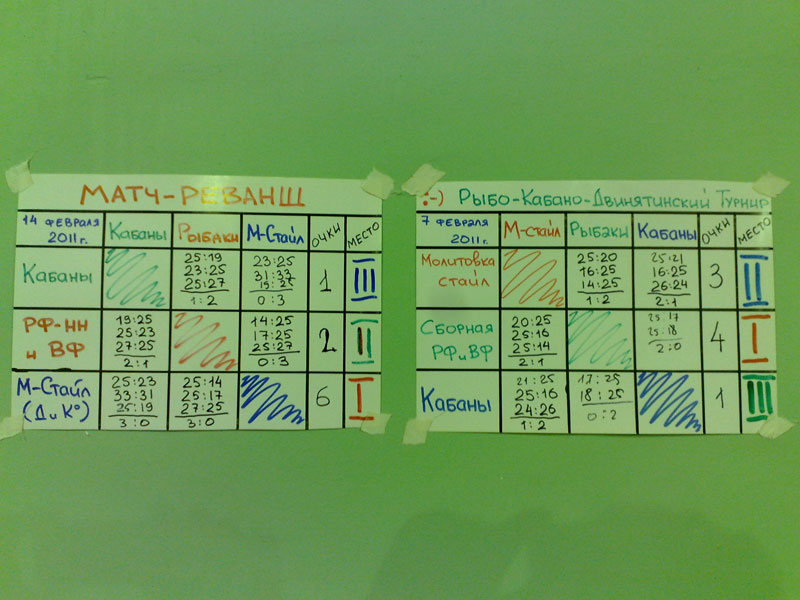 МАТЧ-РЕВАНШ
14 ФЕВРАЛЯ 2011г. КАБАНЫ РЫБАКИ М-СТАЙЛ ОЧКИ МЕСТО
КАБАНЫ 25:19 23:25 1 III
23:25 31:33
25:27 19:25
1:2 0:3
РФ-НН и ВФ 19:25 14:25 2 II
25:23 17:25
27:25 25:27
2:1 0:3
М-СТАЙЛ (Д и К°) 25:23 25:14 6 I
33:31 25:17
25:19 27:25
3:0 3:0
:-) РЫБО-КАБАНО-ДВИНЯТИНСКИЙ ТУРНИР
7 ФЕВРАЛЯ 2011г. М-СТАЙЛ РЫБАКИ КАБАНЫ ОЧКИ МЕСТО
МОЛИТОВКА СТАЙЛ 25:20 25:21 3 II
16:25 16:25
14:25 26:24
1:2 2:1
СБОРНАЯ РФ и ВФ 20:25 25:17 4 I
25:16 25:18
25:14 2:0
2:1
КАБАНЫ 21:25 17:25 1 III
25:16 18:25
24:26 0:2
1:2